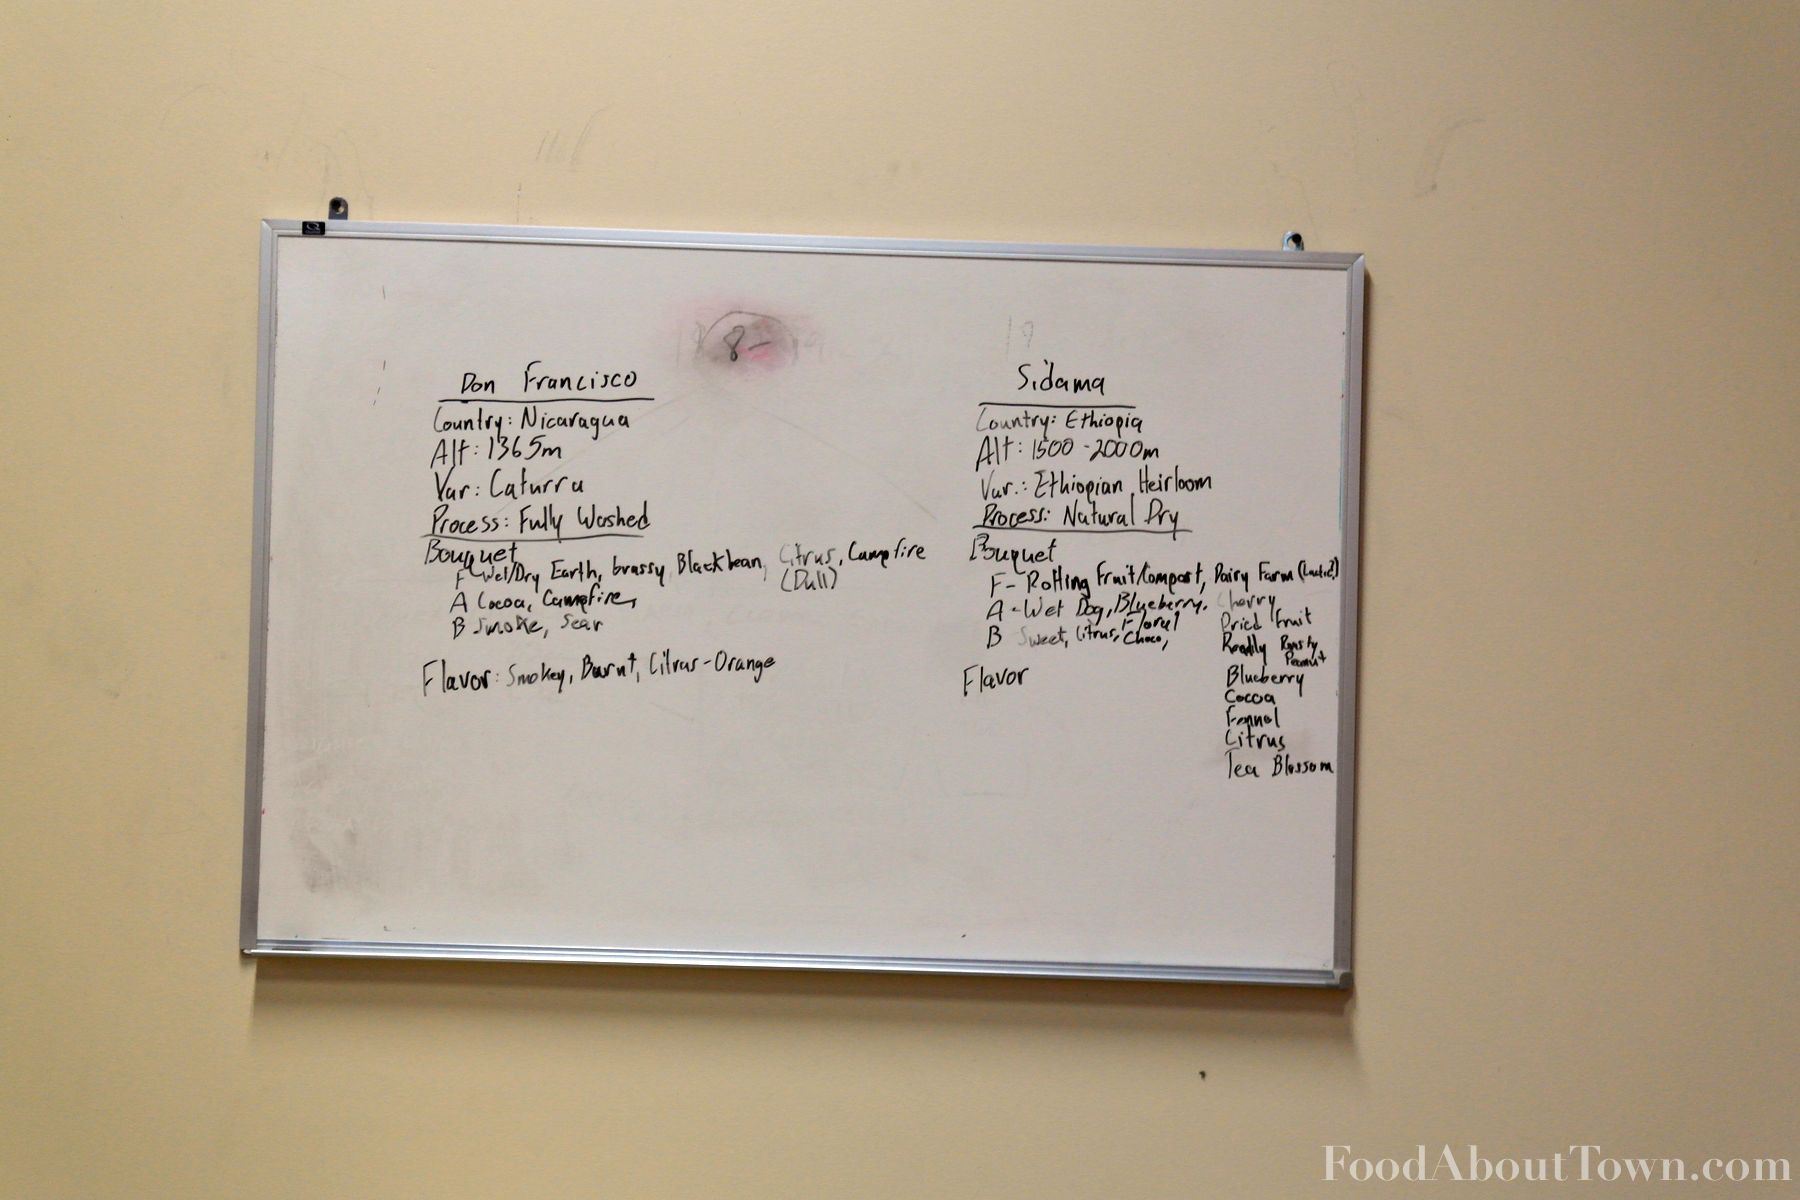 8-
19
Don Francisco
Country: Nicaragua
Alt: 1365m
Var: Caturra
Process: Fully Washed
Bouquet
F Wet/Dry Earth, brassy, Black bean, Citrus, Campfire
(Dull)
A Cocoa, Campfire,
B Smoke, Sear
Flavor: Smokey, Burnt, Citrus-Orange
Sidama
Country: Ethiopia
Alt: 1500-2000m
Var.: Ethiopian Heirloom
Process: Natural Dry
Bouquet
F- Rotting Fruit/Compost, Dairy Farm (Lactic?)
A-Wet Dog, Blueberry,
B Sweet, Citrus, Floral
Choco,
Flavor
Cherry
Dried Fruit
Roasty
Peanut
Blueberry
Cocoa
Fennel
Citrus
Tea Blossom
FoodAboutTown.com